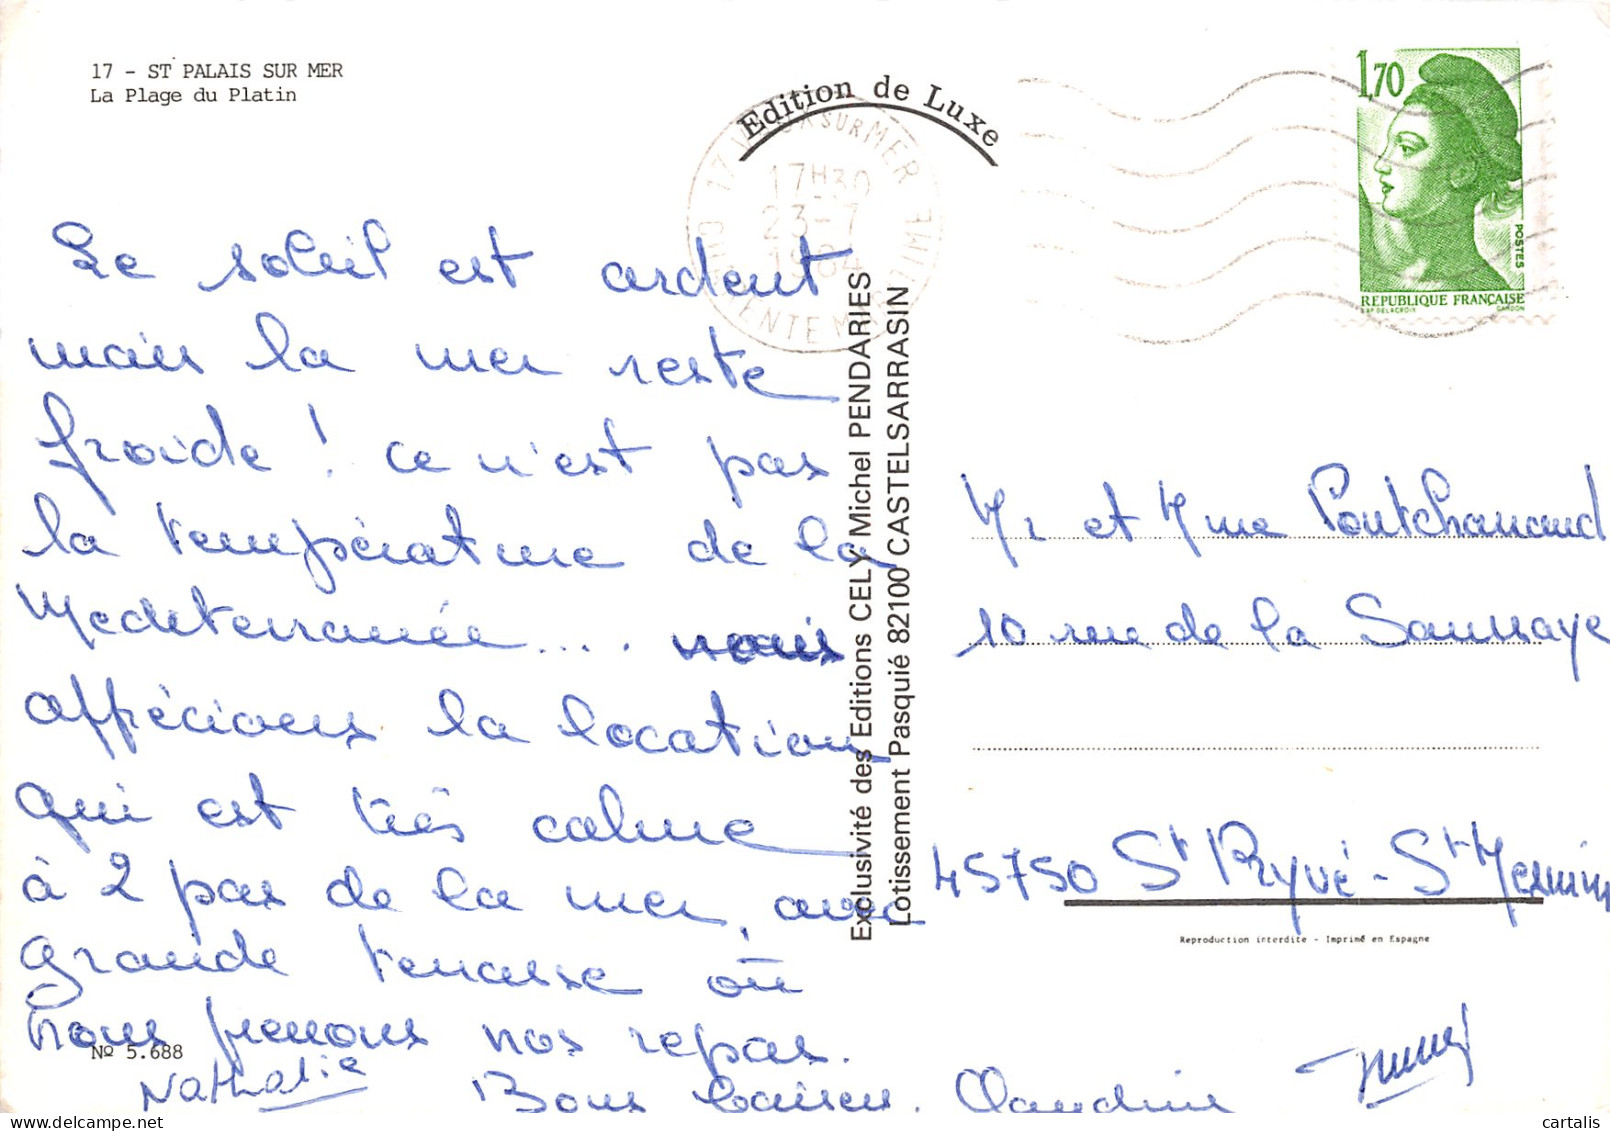 17 - ST PALAIS SUR MER
La Plage du Platin
Edition de Luxe
17 VAUX SUR MER
17H30
23-7
1984
CHARENTE MARITIME
1,70
POSTES
REPUBLIQUE FRANÇAISE
D'AP. DELACROIX GANDON
Le soleil est ardent
mais la mer reste
froide ! ce n'est pas
la température de la
Mediterrannée.... nous
apprécions la location
qui est très calme
à 2 pas de la mer, avec
grande terrasse où
nous prenons nos repas.
Nathalie Bons baisers. Claudine
Nº 5.688
Exclusivité des Editions CELY Michel PENDARIES
Lotissement Pasquié 82100 CASTELSARRASIN
Mr et Mme Pontchanaud
10 rue de la Saussaye
45750 St Pryvé - St Mesmin
Reproduction interdite - Imprimé en Espagne
cartalis